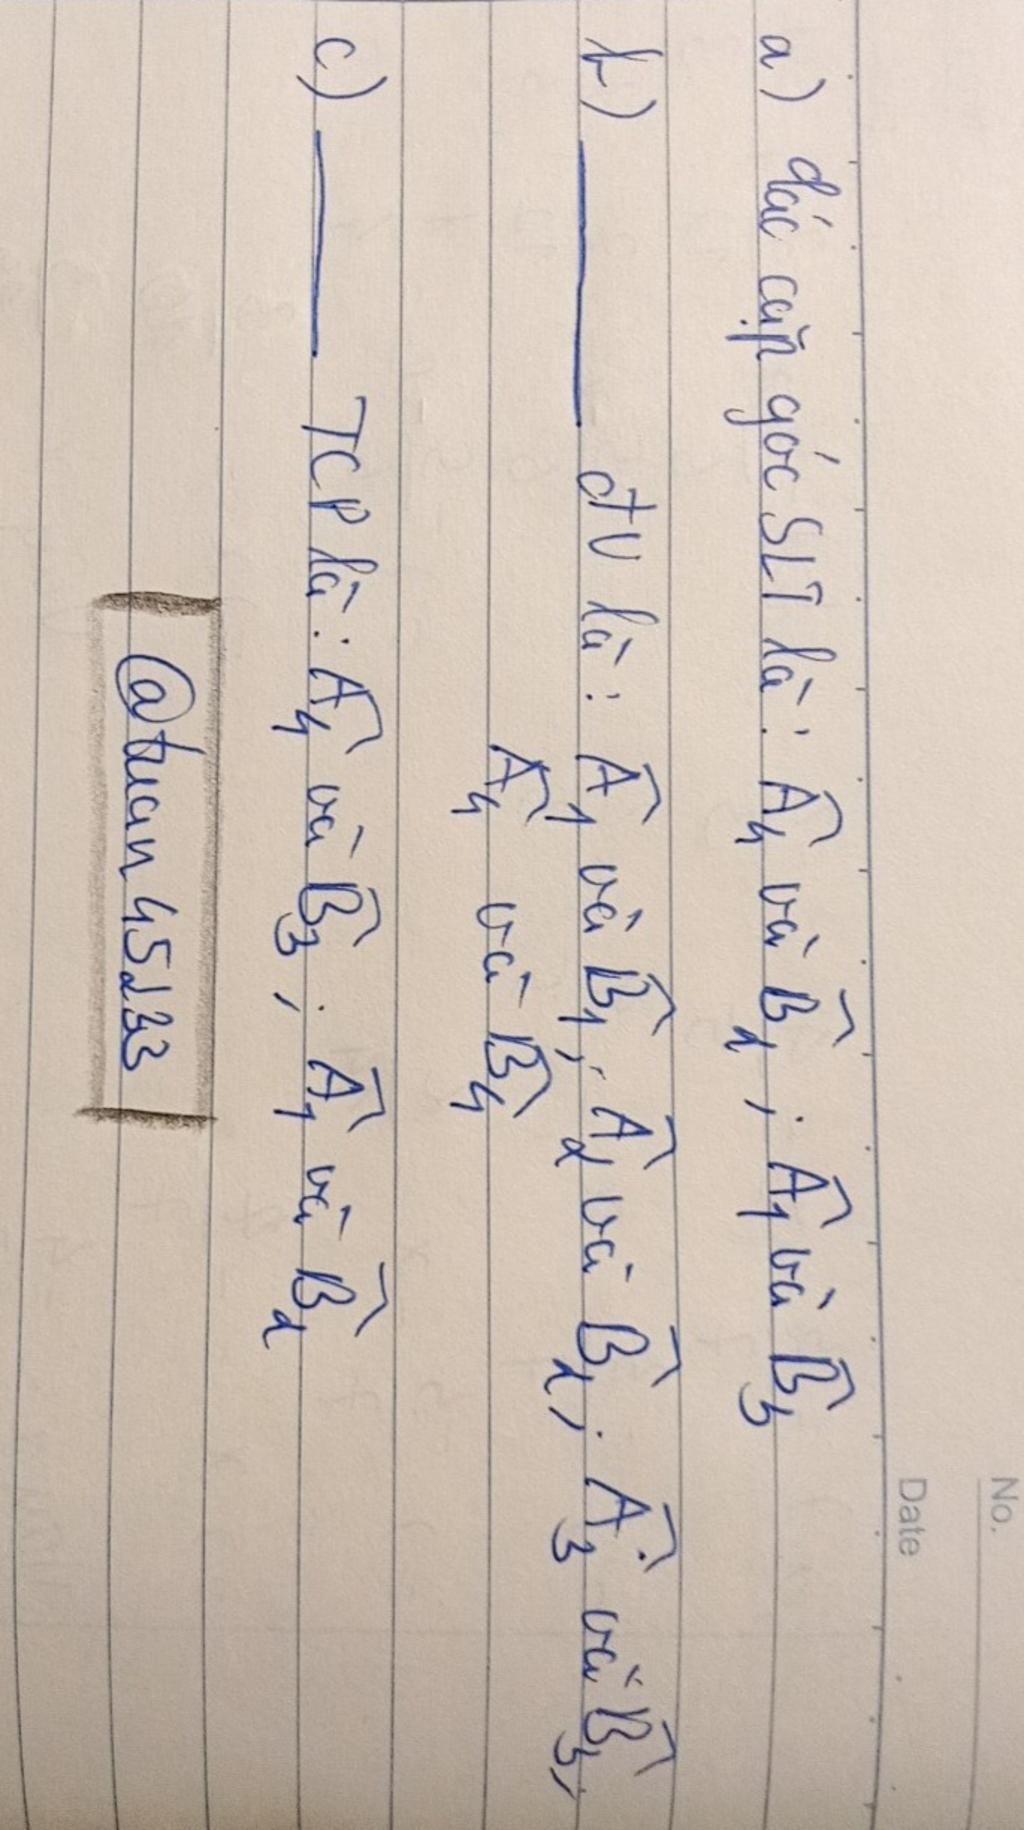 No.
Date
a) Các cặp góc SLT là: Â₄ và B̂₂; Â₁ và B̂₃
b) —— đV là: Â₁ và B̂₁; Â₂ và B̂₂; Â₃ và B̂₃;
Â₄ và B̂₄
c) —— TCP là: Â₄ và B̂₃; Â₁ và B̂₂
@tuan45233